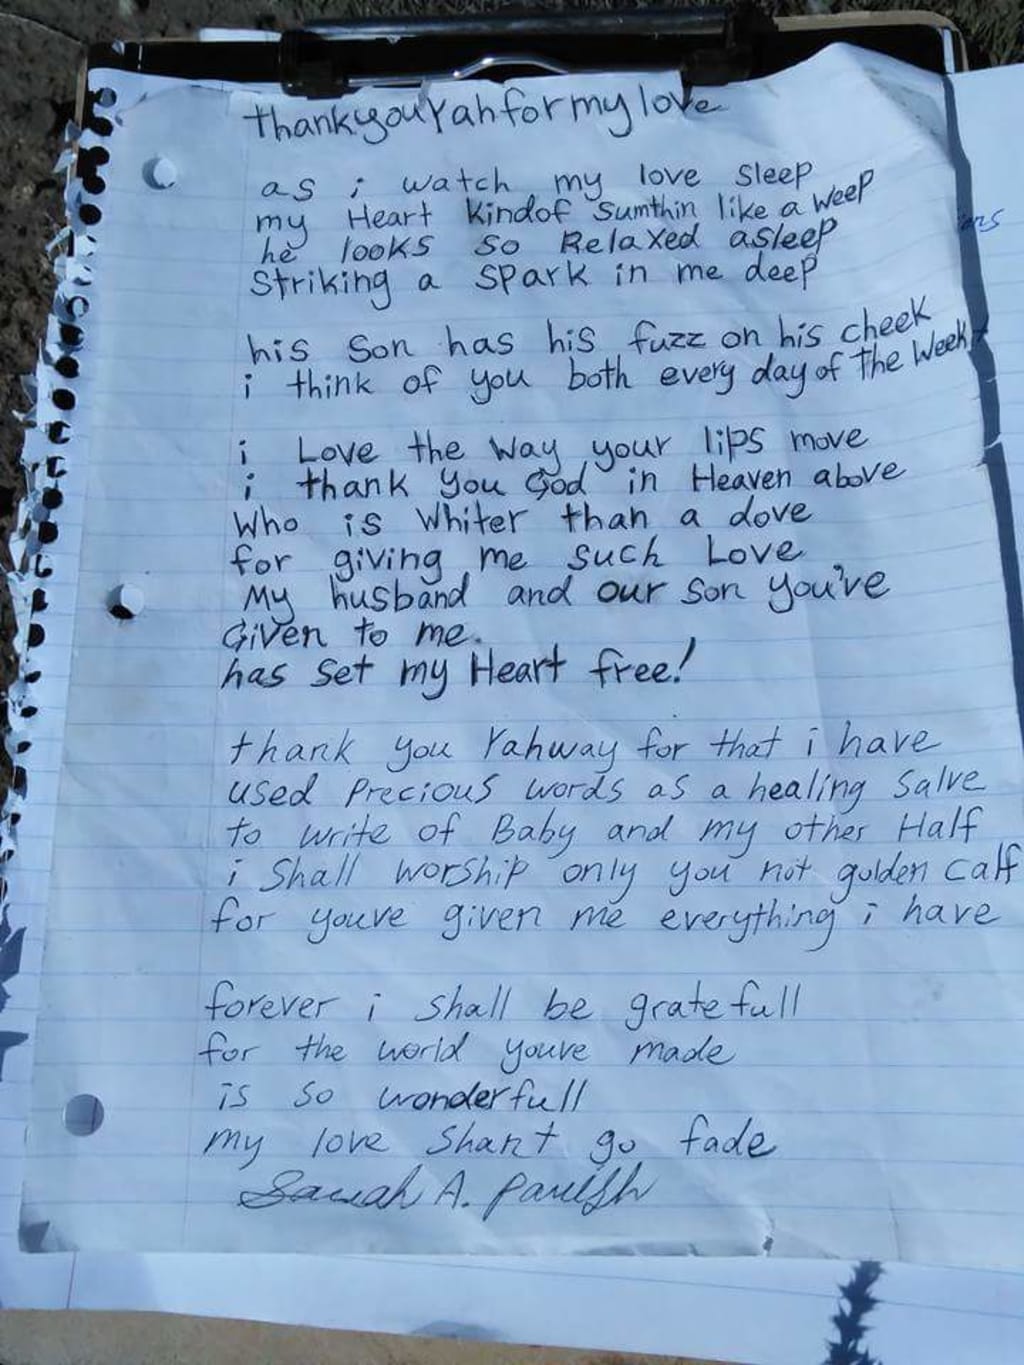 thank you Yah for my love
as i watch my love sleep
my Heart kindof sumthin like a weep
he looks so Relaxed asleep
Striking a spark in me deep
his son has his fuzz on his cheek
i think of you both every day of the week
i Love the way your lips move
i thank you God in Heaven above
Who is Whiter than a dove
for giving me such Love
My husband and our son you've
Given to me.
has set my Heart free!
thank you Yahway for that i have
used precious words as a healing salve
to write of Baby and my other Half
i Shall worship only you not golden calf
for youve given me everything i have
forever i shall be gratefull
for the world youve made
is so wonderfull
my love shant go fade
Sarah A. Parrish